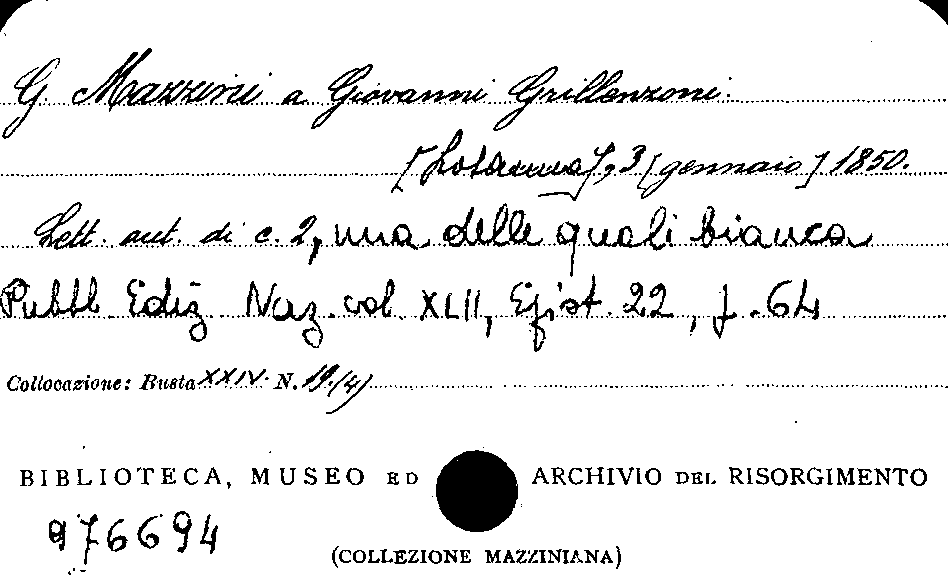 G. Mazzini a Giovanni Grillenzoni.
[Losanna], 3 [gennaio] 1850.
Lett. aut. di c. 2, una delle quali bianca
Pubbl. Ediz. Naz. vol. XLII, Epist. 22, p. 64
Collocazione: Busta XXIV. N. 19.(4)
BIBLIOTECA, MUSEO ED ARCHIVIO DEL RISORGIMENTO
976694
(COLLEZIONE MAZZINIANA)